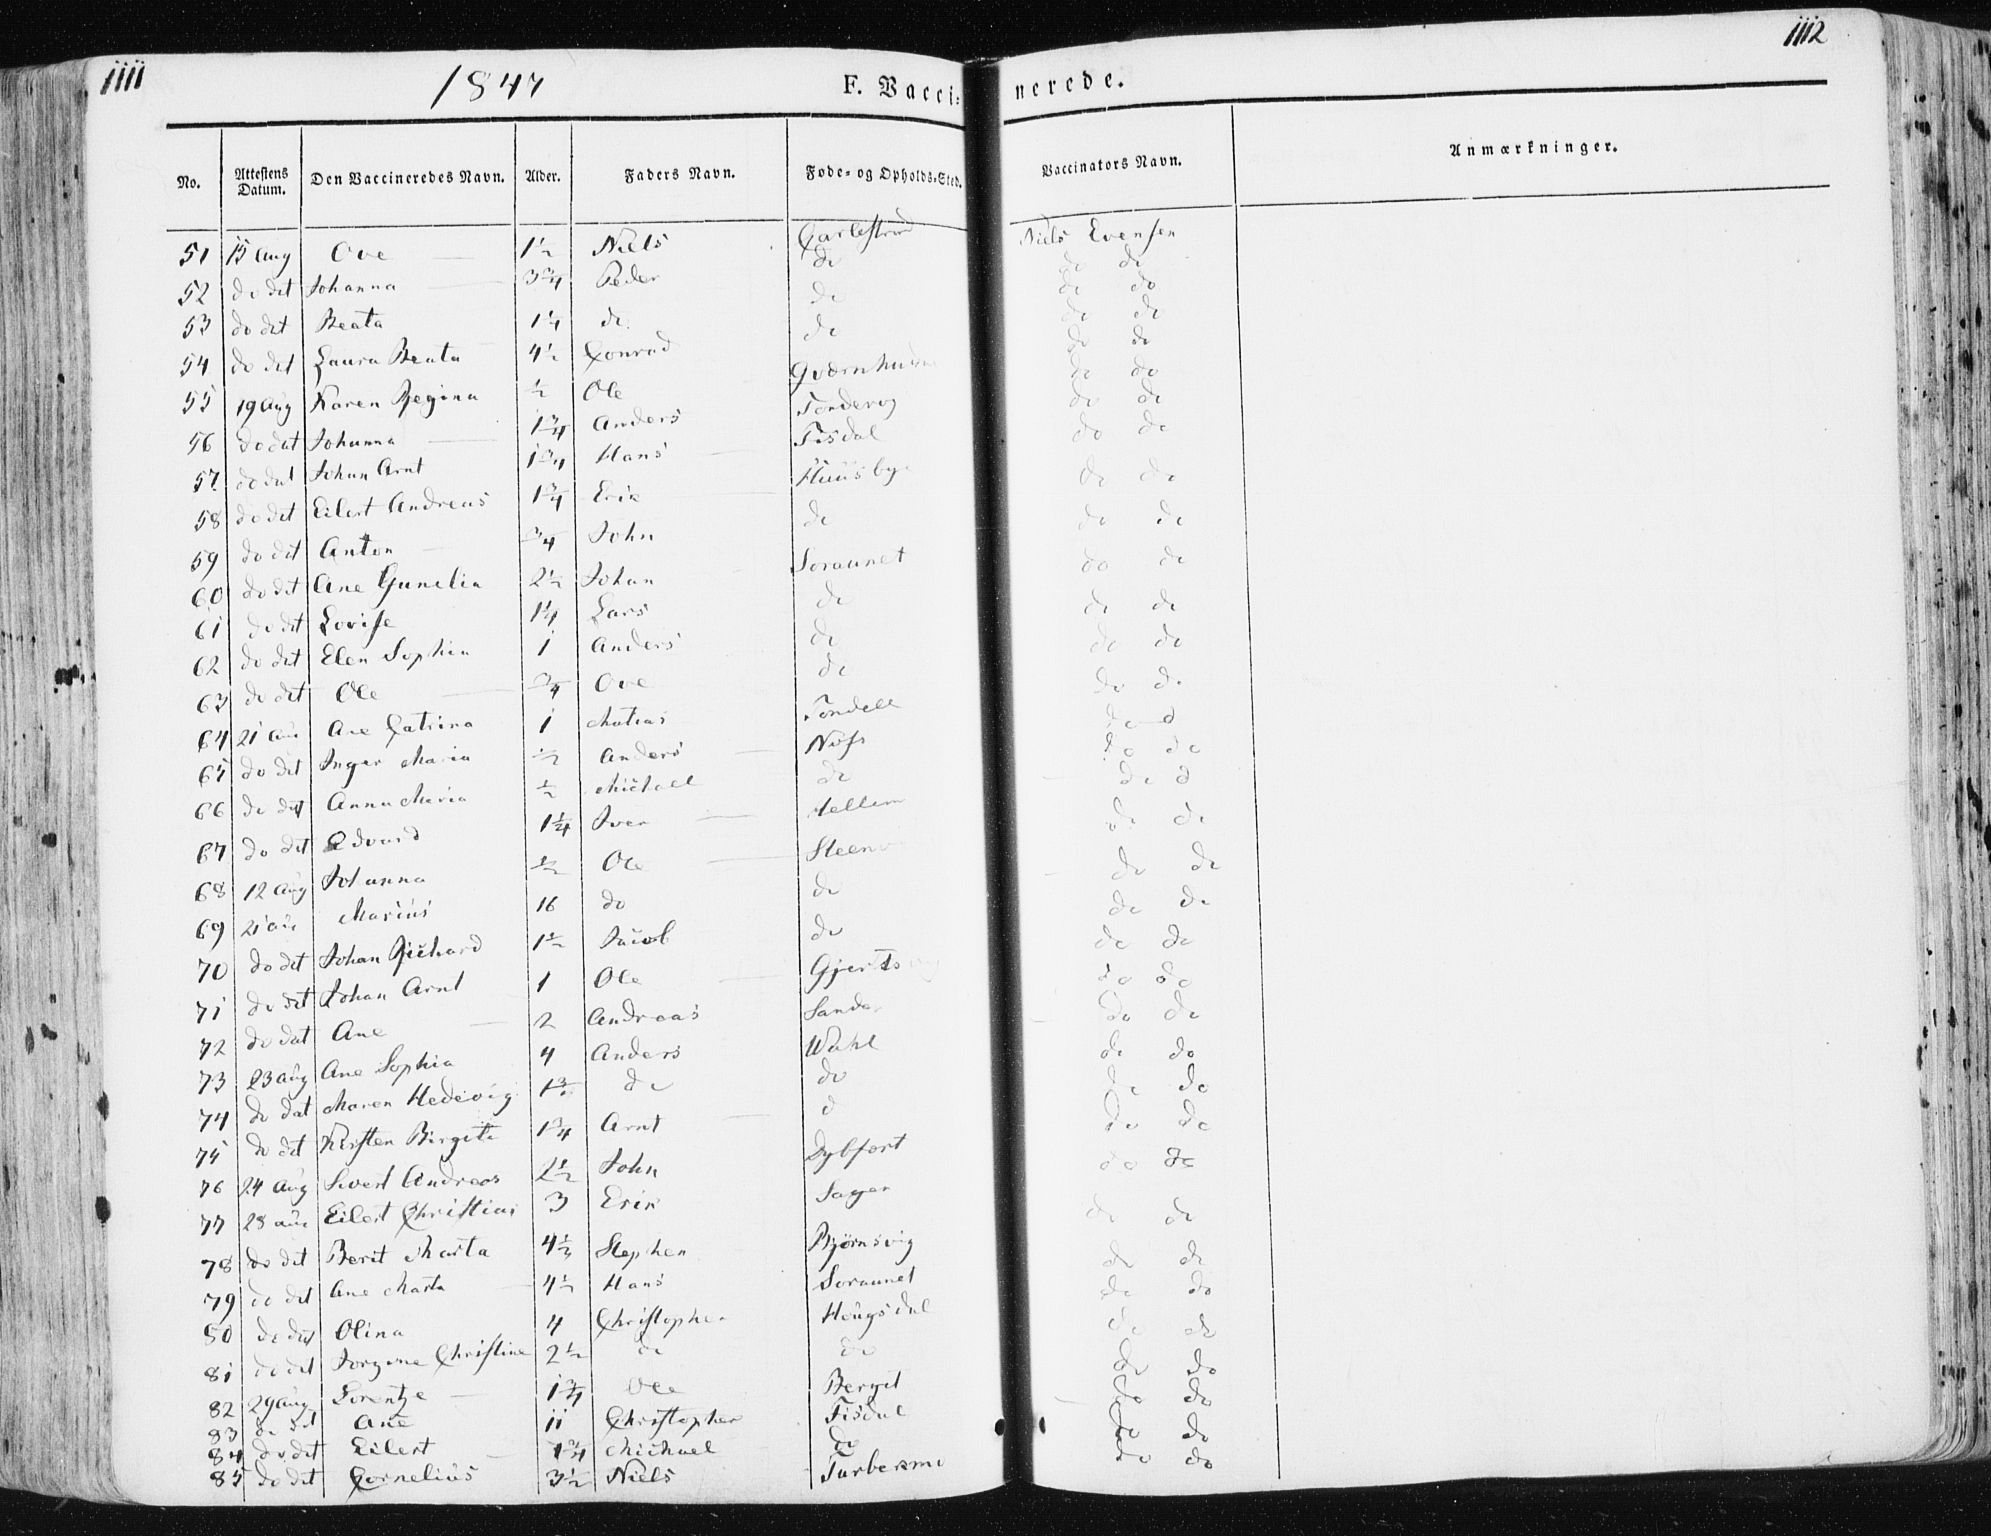 1111
1847
F. Vaccinerede.
1112
No. Attestens Datum. Den Vaccineredes Navn. Alder. Faders Navn. Føde- og Opholds-Sted. Vaccinators Navn. Anmærkninger.
51 15 Aug Ove 1 1/2 Niels Carlestrand Niels Evensen
52 do dat Johanna 3 3/4 Peder do do do
53 do dat Beata 1 1/4 do do do do
54 do dat Laura Beata 4 1/2 Conrad do do do
55 19 Aug Karen Regina 1/2 Ole do do
56 do dat Johanna 1 3/4 Anders do do
57 do dat Johan Arnt 1 3/4 Hans Tisdal do do
58 do dat Eilert Andreas 1 3/4 Erik Huusbye do do
59 do dat Anton 3/4 John do do do
60 do dat Ane Gunelia 2 1/2 Johan Soraunet do do
61 do dat Lovise 1 1/4 Lars do do do
62 do dat Elen Sophia 1 Anders do do do
63 do dat Ole 3/4 Ove do do do
64 21 Aug Ane Catrina 1 Matias Tondell do d
65 do dat Inger Maria 1/2 Anders do do
66 do dat Anna Maria 1/2 Michael do do d
67 do dat Edvard 1 1/4 Iver do do
68 12 Aug Johanna 1/2 Ole do do
69 21 Aug Marius 16 do do do do
70 do dat Johan Richard 1 1/2 Jacob do do do
71 do dat Johan Arnt 1 Ole do do
72 do dat Ane 2 Andreas do do
73 23 Aug Ane Sophia 4 Anders Wahl do do
74 do dat Maren Hedevig do do do do
75 do dat Kirsten Birgita 1 3/4 Arnt d do do
76 24 Aug Sivert Andreas 2 1/2 John Dybfort do do
77 28 Aug Eilert Christian 3 Erik do do
78 do dat Berit Marta 4 1/2 Stephen Bjørnsvig do do
79 do dat Ane Marta 4 1/2 Hans Soraunet do do
80 do dat Olina 4 Christopher Hougsdal do do
81 do dat Jorgine Christine 2 1/2 do do do do
82 29 Aug Lorentze 1 3/4 Ole do do
83 do dat Ane 11 Christopher Tisdal do do
84 do dat Eilert 1 3/4 Michael do do do
85 do dat Cornelius 3 1/2 Niels do do